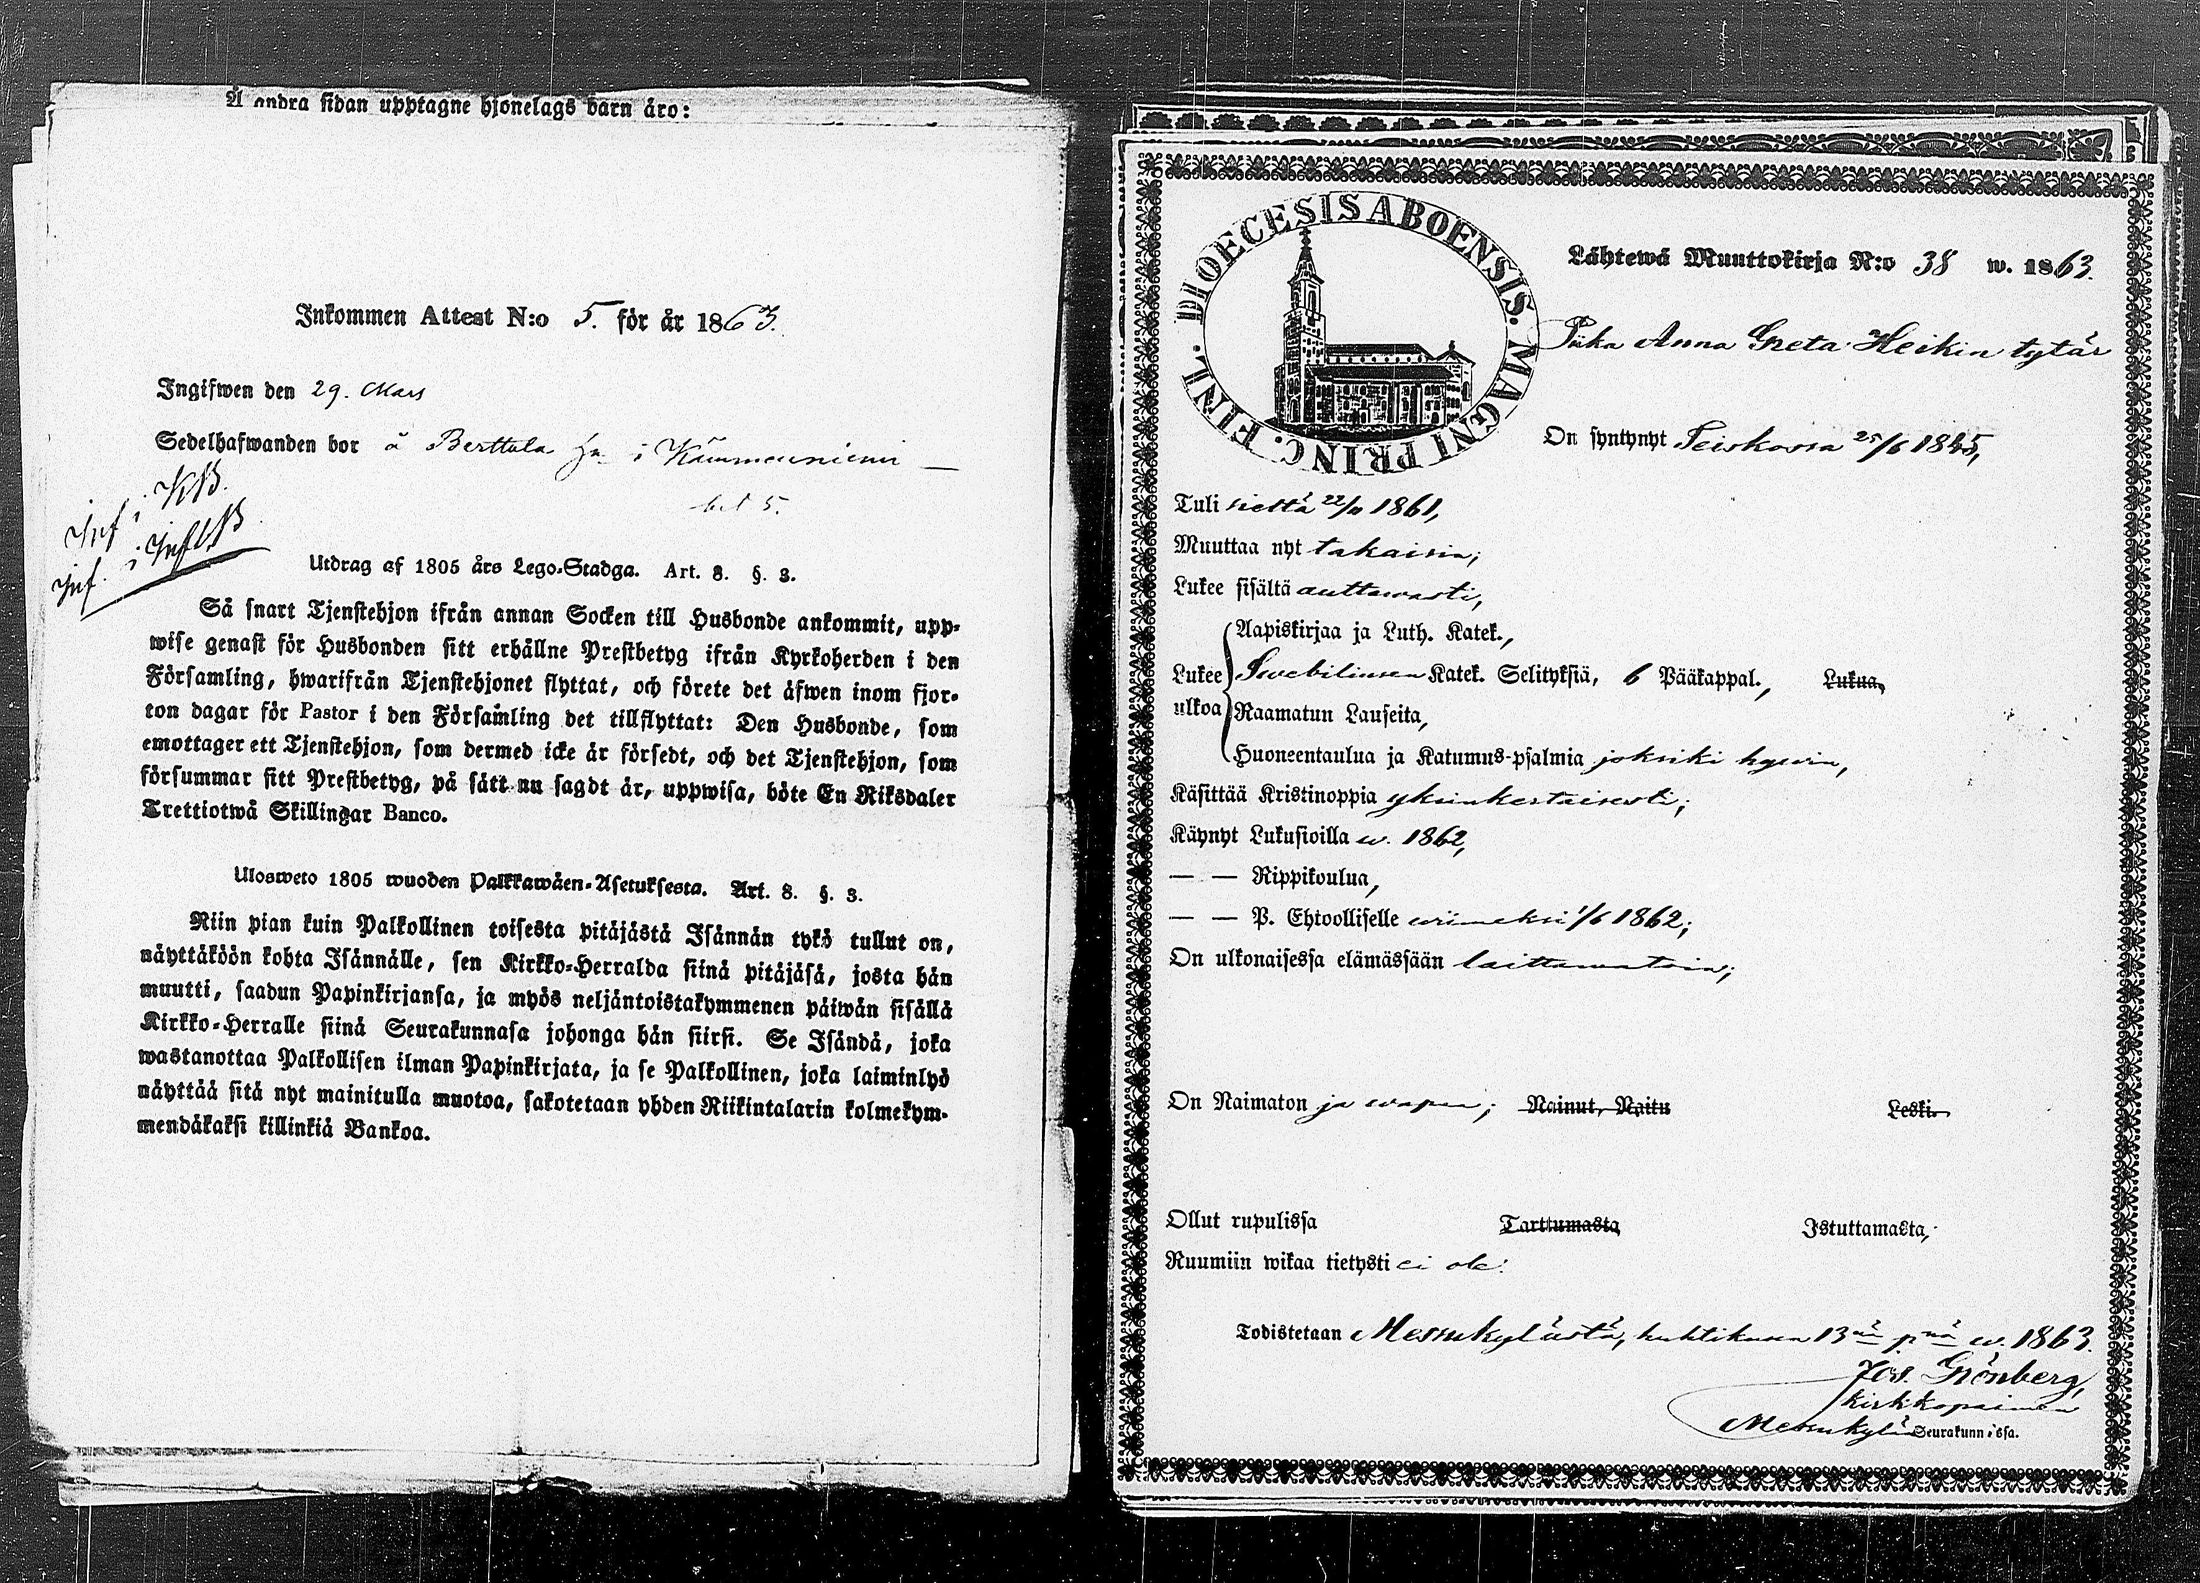 Å andra sidan upptagne hjonelags barn äro:
Inkommen Attest N:o 5. för år 1863.
Ingifwen den 29. Mars
Sedelhafwanden bor å Berttula i Kämmenniemi
Inf i KB.
Inf. i InflB
Utdrag af 1805 års Lego-Stadga. Art. 8. §. 3.
Så snart Tjenstehjon ifrån annan Socken till Husbonde ankommit, upp-
wise genast för Husbonden sitt erhållne Prestbetyg ifrån Kyrkoherden i den
Församling, hwarifrån Tjenstehjonet flyttat, och förete det äfwen inom fjor-
ton dagar för Pastor i den Församling det tillflyttat: Den Husbonde, som
emottager ett Tjenstehjon, som dermed icke är försedt, och det Tjenstehjon, som
försummar sitt Prestbetyg, på sätt nu sagdt är, uppwisa, böte En Riksdaler
Trettiotwå Skillingar Banco.
Ulosweto 1805 wuoden Palkkawäen-Asetuksesta. Art. 8. §. 3.
Niin pian kuin Palkollinen toisesta pitäjästä Isännän tykö tullut on,
näyttäköön kohta Isännälle, sen Kirkko-Herralda siinä pitäjäsä, josta hän
muutti, saadun Papinkirjansa, ja myös neljäntoistakymmenen päiwän sisällä
Kirkko-Herralle siinä Seurakunnasa johonga hän siirsi. Se Isändä, joka
wastanottaa Palkollisen ilman Papinkirjata, ja se Palkollinen, joka laiminlyö
näyttää sitä nyt mainitulla muotoa, sakotetaan yhden Riikintalarin kolmekym-
mendäkaksi killinkiä Bankoa.
DIOECESIS ABOENSIS. MAGNI PRINC. FINL.
Lähtewä Muuttokirja N:o 38 w. 1863.
Piika Anna Greta Heikin tytär
On syntynyt Teiskossa 25/6 1845,
Tuli sieltä 22/11 1861,
Muuttaa nyt takaisin;
Lukee sisältä auttawasti,
Aapiskirjaa ja Luth. Katek.,
Lukee Swebiliusen Katek. Selityksiä, 6 Pääkappal., Lukua,
ulkoa Raamatun Lauseita,
Huoneentaulua ja Katumus-psalmia joksiki hywin,
Käsittää Kristinoppia yksinkertaisesti;
Käynyt Lukusioilla w. 1862,
— — Rippikoulua,
— — P. Ehtoolliselle wiimeksi 1/6 1862;
On ulkonaisessa elämässään laittamatoin;
On Naimaton ja wapaa; Nainut, Naitu Leski
Ollut rupulissa Tarttumasta Istuttamasta,
Ruumiin wikaa tietysti ei ole.
Todistetaan Messukylästä, huhtikuun 13nä pnä w. 1863.
Jos. Grönberg,
Kirkkopaimen
Messukylä Seurakunnassa.